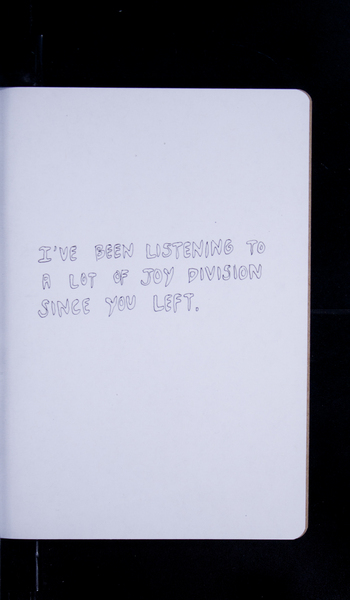 I'VE BEEN LISTENING TO
A LOT OF JOY DIVISION
SINCE YOU LEFT.